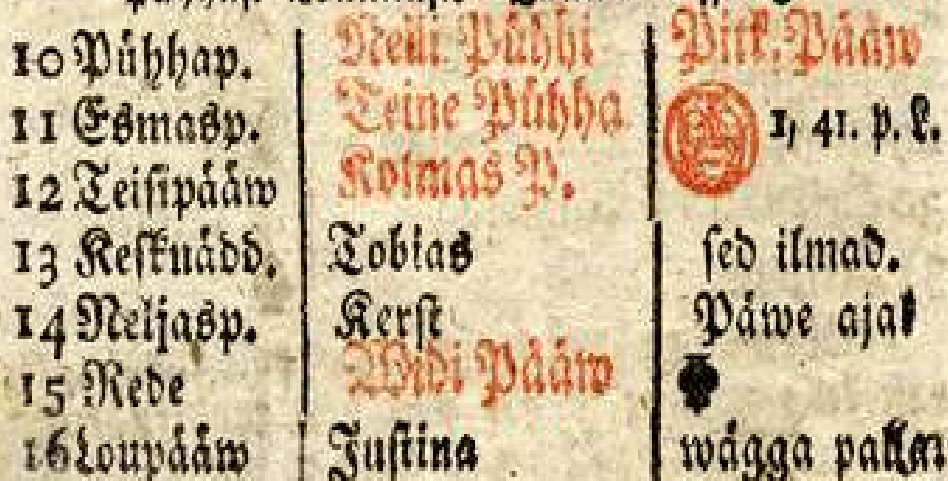 10 Pühhap. Nelli Pühhi Pitk. Pääw
11 Esmasp. Teine Pühha 1, 41. p. L.
12 Teisipääw Kolmas P.
13 Kesknädd. Tobias sed ilmad.
14 Neljasp. Kerst Päwe ajal
15 Rede Widi Pääw
16 Loupääw Justina wägga